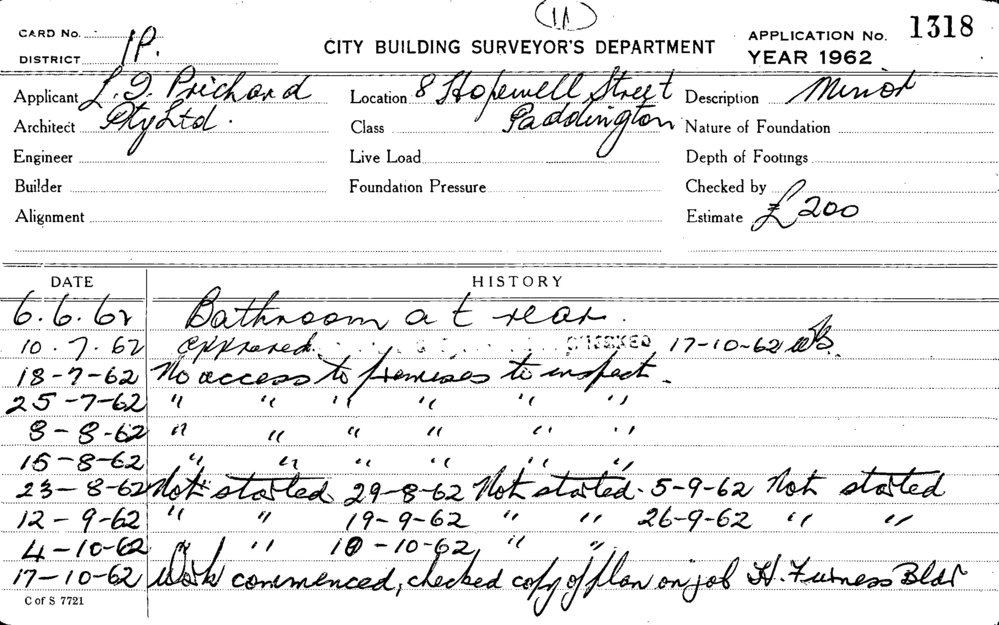 (11)
CARD No.
DISTRICT 1P.
CITY BUILDING SURVEYOR'S DEPARTMENT
APPLICATION No. 1318
YEAR 1962
Applicant L. J. Prichard
Location 8 Hopewell Street
Description Minor
Architect Pty Ltd.
Class Paddington
Nature of Foundation
Engineer
Live Load
Depth of Footings
Builder
Foundation Pressure
Checked by
Alignment
Estimate £200
DATE HISTORY
6.6.62 Bathroom at rear.
10.7.62 approved. CHECKED 17-10-62
18-7-62 No access to premises to inspect.
25-7-62 " " " " " "
8-8-62 " " " " " "
15-8-62 " " " " " "
23-8-62 Not started. 29-8-62 Not started. 5-9-62 Not started
12-9-62 " " 19-9-62 " " 26-9-62 " "
4-10-62 " " 10-10-62, " "
17-10-62 Work commenced, checked copy of plan on job H. Furness Bldr
C of S 7721